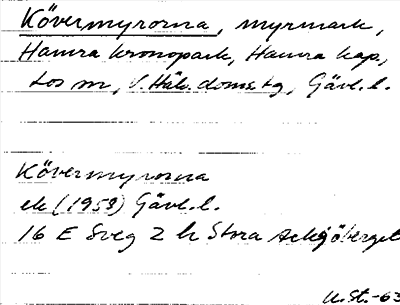 Kövermyrorna, myrmark,
Hamra kronopark, Hamra kap,
Los sn, V. Häls. doms. tg, Gävl. l.
Kövermyrorna
ek (1958) Gävl. l.
16 E Sveg 2 h Stora
U.St.-63